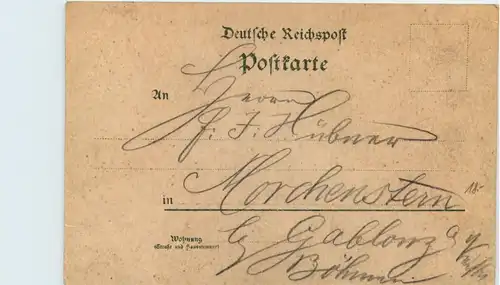 Deutsche Reichspost
Postkarte
An Herrn
F. J. Hübner
in Morchenstern 18-
b/ Gablonz a/
Böhmen
Wohnung
(Straße und Hausnummer)